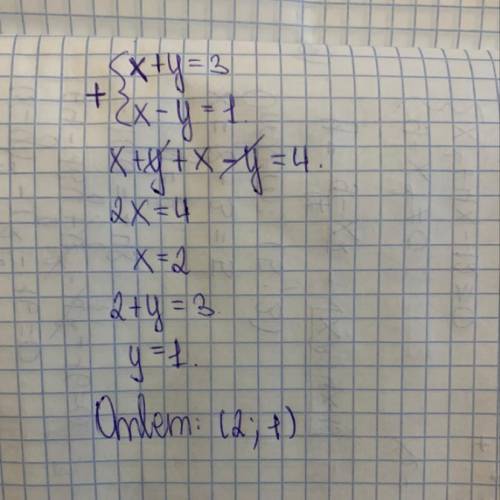 + { x+y=3
x-y=1.
x+y+x-y=4.
2x=4
x=2
2+y=3
y=1.
Ответ: (2; 1)